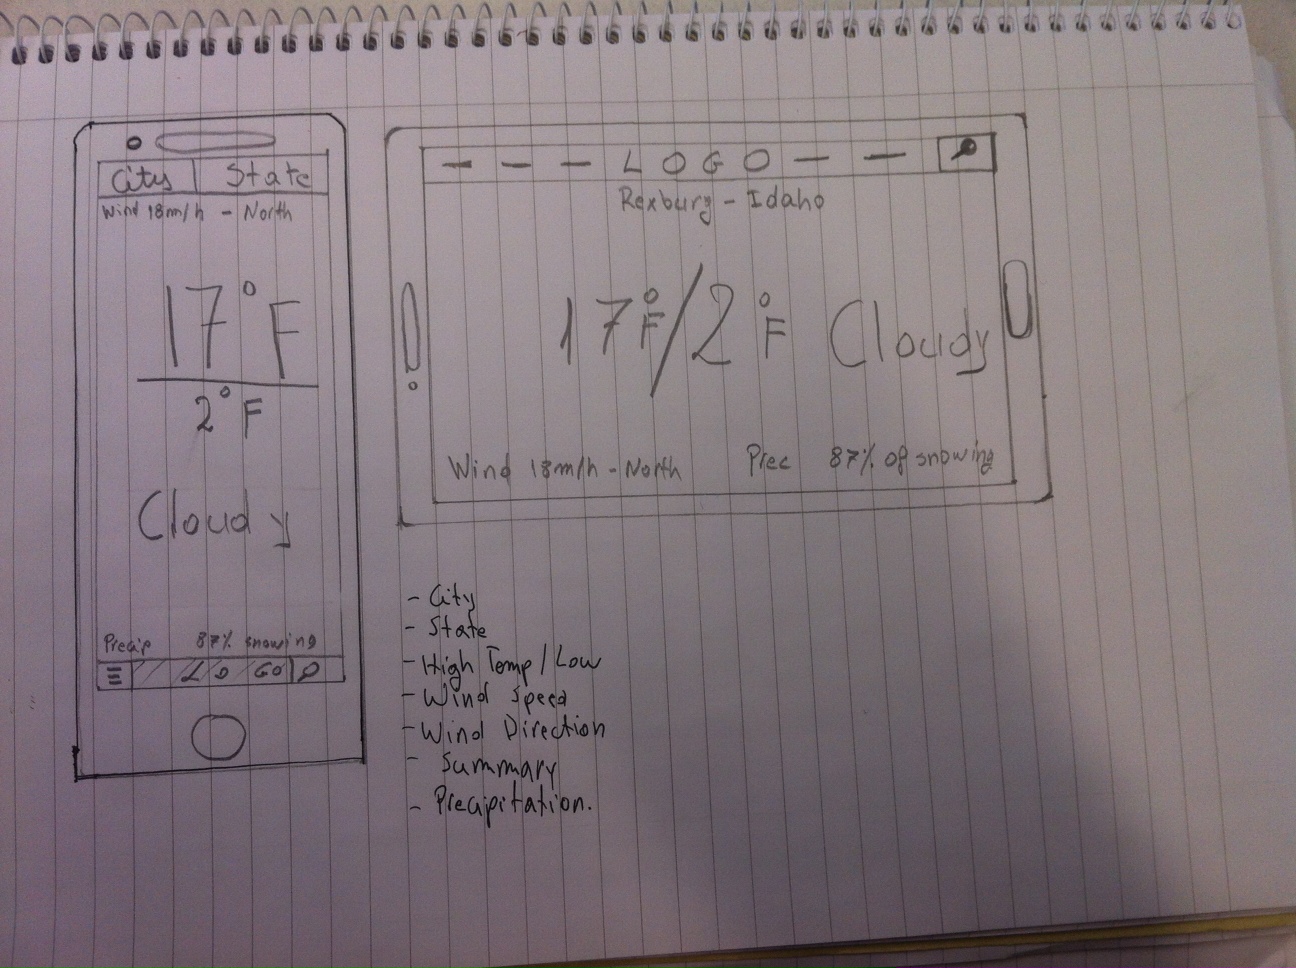 City State
Wind 18m/h - North
17°F
2°F
Cloudy
Precip 87% snowing
LOGO
LOGO
Rexburg - Idaho
17°F/2°F Cloudy
Wind 18m/h - North Prec 87% of snowing
- City
- State
- High Temp/Low
- Wind Speed
- Wind Direction
- Summary
- Precipitation.